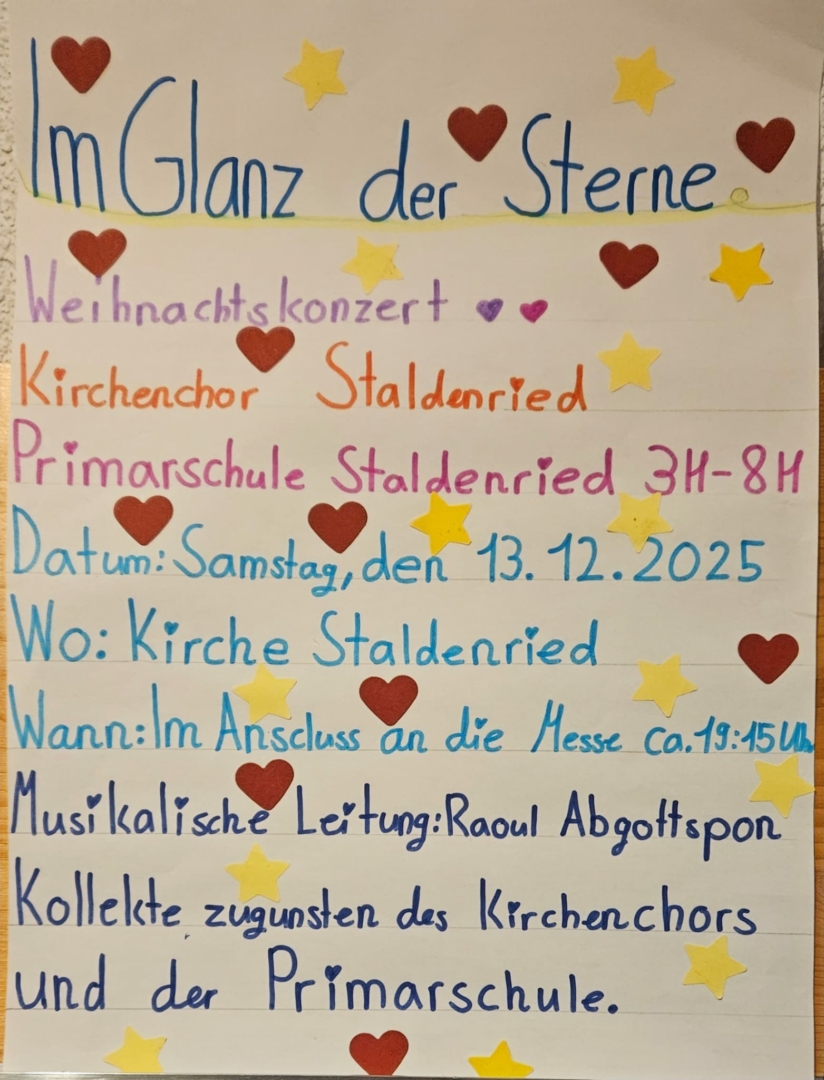 Im Glanz der Sterne
Weihnachtskonzert
Kirchenchor Staldenried
Primarschule Staldenried 3H-8H
Datum: Samstag, den 13.12.2025
Wo: Kirche Staldenried
Wann: Im Anscluss an die Messe ca. 19:15 Uhr
Musikalische Leitung: Raoul Abgottspon
Kollekte zugunsten des Kirchenchors
und der Primarschule.